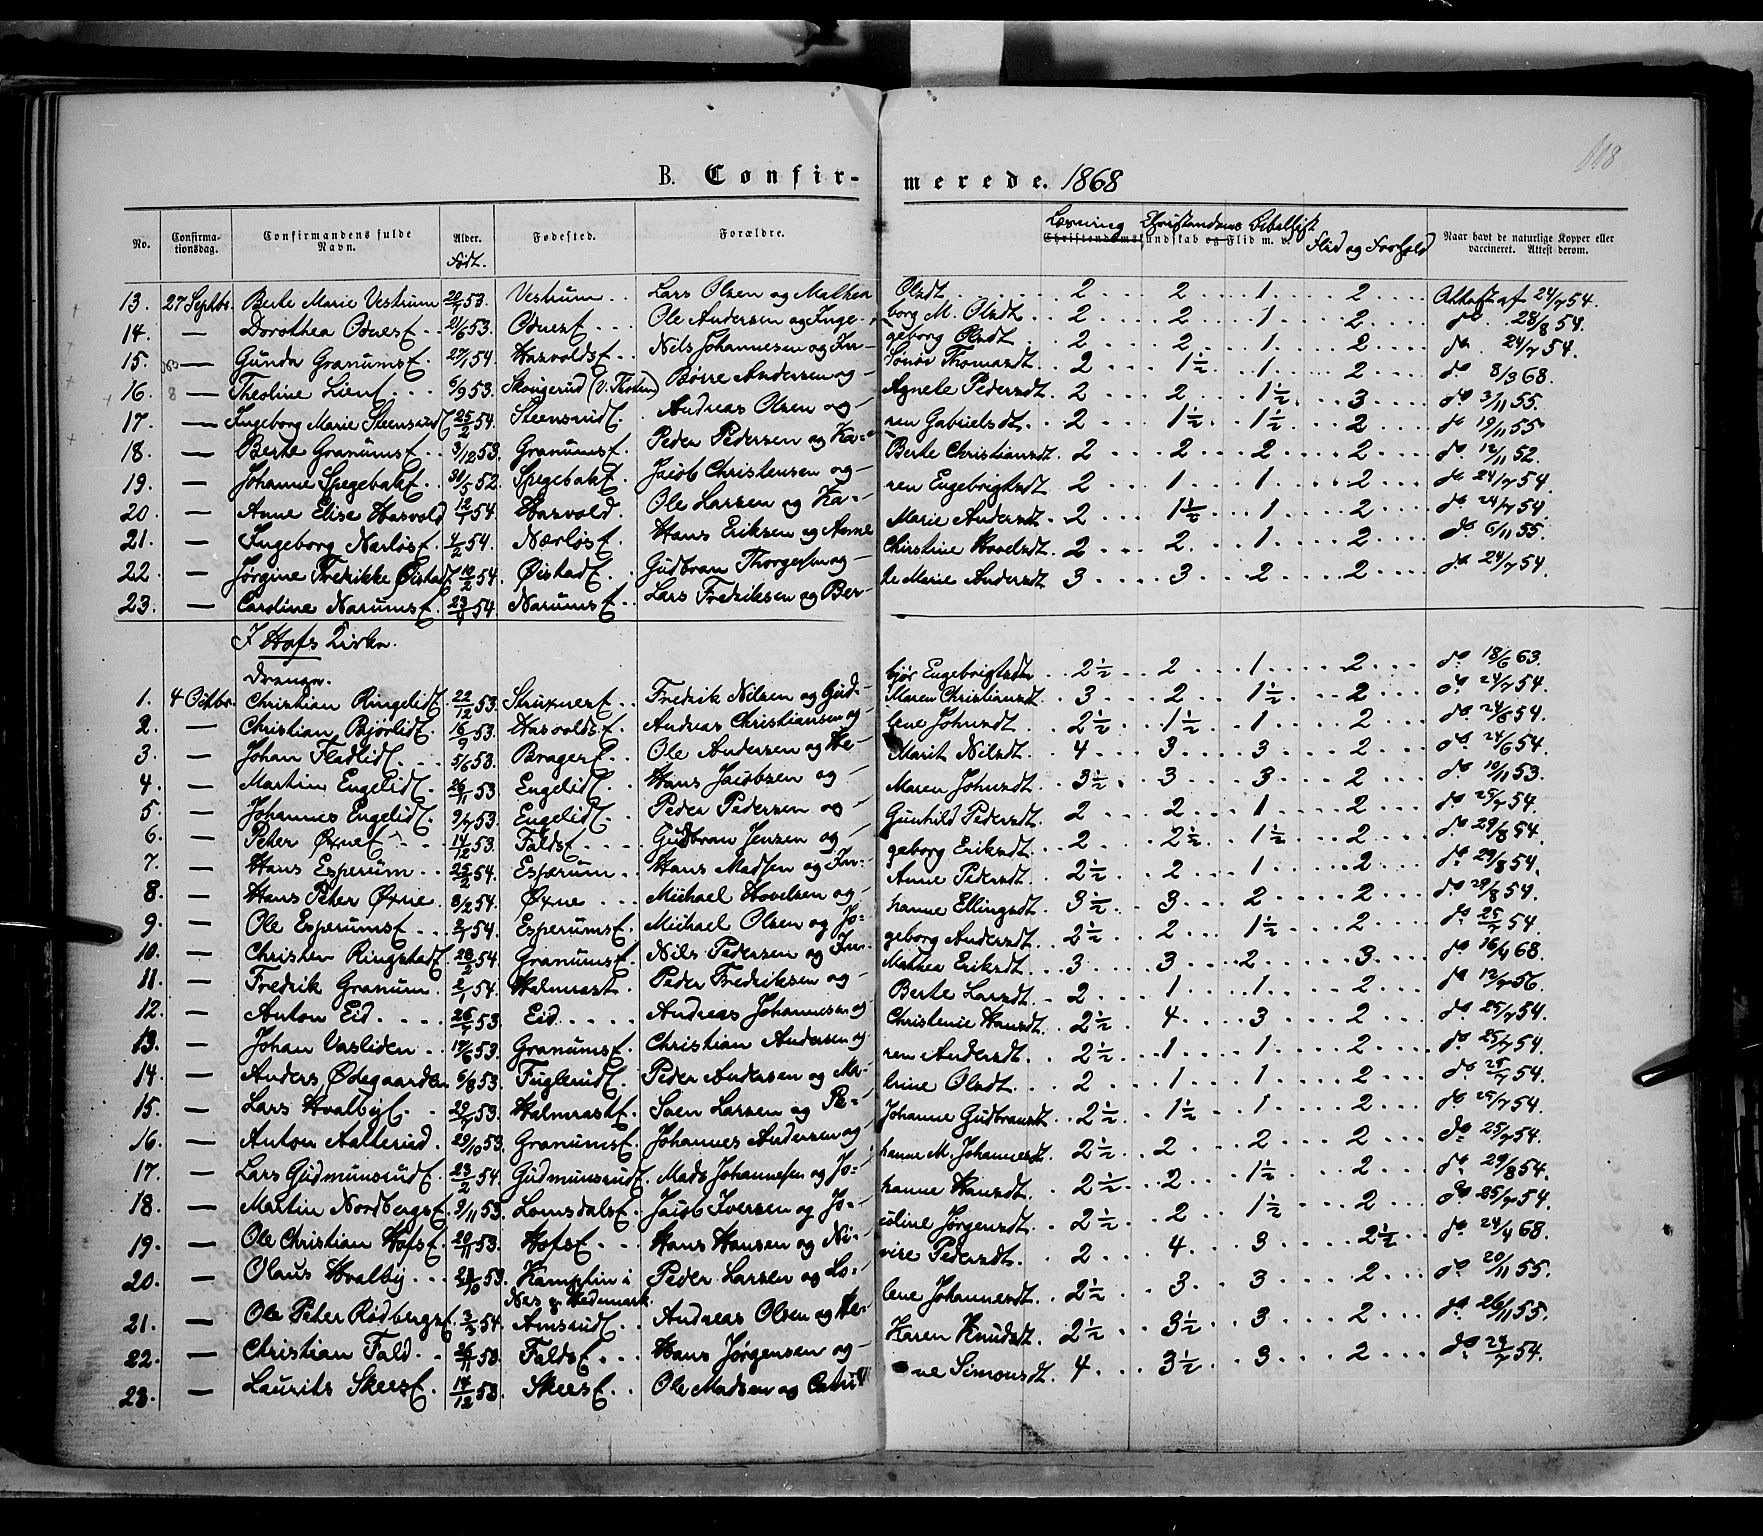 118
B. Confirmerede. 1868
No. Confirmationsdag. Confirmandens fulde Navn. Alder. Født. Fødested. Forældre. Læsning Christendoms Bibelhist Flid og Forhold Christendomskundskab og Flid m. v. Naar havt de naturlige Kopper eller vaccineret. Attest derom.
13. 27 Septbr. Berte Marie Vestrum 53. Vestrum Lars Olsen og Mathea Olsdt. 2 2 1 2 Attest af 24/7 54.
14. — Dorothea Odnesf. 21/6 53. Odnesf. Ole Andersen og Inge- borg M. Olsdt 2 2 1 2 do 28/8 54.
15. — Gunda Granumsf. 27/1 54. Hasvoldsf. Nils Johannesen og In- geborg Olsdt 2 2 1 2 do 24/7 54.
16. — Theoline Lienf. 6/9 53. Skougerud (V. Thoten) Børre Andersen og Thomasdt 2 1½ 1 2 do 8/3 68.
17. — Ingeborg Marie Steensrudf. 25/2 54. Steensrudf. Andreas Olsen og Agnete Pedersdt. 2 2 1½ 3 do 3/11 55.
18. — Berte Granumsf. 3/12 53. Granumsf. Peder Pedersen og Ka- ren Gabrielsdt. 2 1½ 1½ 2 do 19/11 55
19. — Johanne Spegebakf. 30/5 52. Spegebakf. Jacob Christensen og Berte Christiansdt. 2 2 2 2 do 12/11 52.
20. — Anne Elise Hasvold 12/1 54. Hasvold. Ole Larsen og Ka- ren Engebrigtsdt 2 1 1 2 do 24/7 54.
21. — Ingeborg Nærløsf. 4/2 54. Nærløsf. Hans Eriksen og Anne Marie Andersdt. 2 1½ 1 2 do 24/7 54.
22. — Jørgine Fredrikke Øistadf. 10/2 54. Øistadf. Gudbran Thorgersen og Christine Hovelsdt. 2 2 1 2 do 6/11 55.
23. — Caroline Narumsf. 54. Narumsf. Lars Fredriksen og Ber- te Marie Andersdt 3 3 2 2 do 24/7 54.
I Hofs Kirke.
Drenge.
1. 4 Octbr. Christian Ringelidf. 22/12 53. Struxnesf. Fredrik Nilsen og Gud- bjør Engebrigtsdtr 2½ 2 1 2 do 18/6 63.
2. — Christian Bjørlidf. 16/9 53. Hasvoldsf. Andreas Christiansen og Maren Christiansdt. 3 2 1½ 2 do 24/7 54.
3. — Johan Fladlidf. 5/6 53. Bragerf. Ole Andersen og He- lene Johnsdt. 2½ 1½ 1 2 do 24/8 54.
4. — Martin Engelidf. 26/11 53 Engelidf. Hans Jacobsen og Marit Nilsdt. 4 3 3 2 do 24/6 54.
5. — Johannes Engelidf. 9/7 53. Engelidf. Peder Pedersen og Maren Johnsdt. 3½ 3 3 2 do 10/11 53.
6. — Peter Øxnef. 14/12 53. Faldsf. Gudbran Jensen og Gunhild Pedersdt. 2 2 1 2 do 25/7 54.
7. — Hans Esperum 22/2 54. Esperum Hans Madsen og In- geborg Eriksdt. 2 2½ 1½ 2 do 29/8 54.
8. — Hans Peter Øxne. 8/2 54. Øxne Michael Hovelsen og Anne Pedersdt. 2½ 2 1 2 do 29/8 54.
9. — Ole Esperumsf. 54. Esperumsf. Michael Olsen og Jo- hanne Ellingsdt. 3½ 3 2 2 do 29/8 54.
10. — Christen Ringstadf. 28/2 54. Granumsf. Nils Pedersen og In- geborg Andersdt. 2½ 2 1½ 2 do 25/7 54.
11. — Fredrik Granum. 2/1 54. Halmrast. Peder Fredriksen og Mathea Eriksdt. 3 3 2 3 do 16/4 68.
12. — Anton Eid. 53. Eid. Andreas Johannesen og Berte Larsdt. 2 1 1 2 do 12/7 56.
13. — Johan Vasliden 19/6 53. Granumsf. Christian Andersen og Christenie Hansdt. 2½ 4 3 2 do 25/7 54.
14. — Anders Ødegaarden 6/8 53. Fuglerudf. Peder Andersen og Ma- ren Andersdt. 2½ 1 1 2 do 25/7 54.
15. — Lars Hvalbyf. 53. Halmrastf. Sven Larsen og Pe- trine Olsdt. 2 1 1 2 do 25/7 54.
16. — Anton Aalterud. 29/10 53. Granumsf. Johannes Andersen og Johanne Gudbransdt 2½ 1½ 1 2 do 25/7 54.
17. — Lars Gudmunsrudf. 23/2 54. Gudmunsrudf. Mads Johannesen og Jo- hanne M. Johannesdt. 2½ 2 2 2 do 25/7 54.
18. — Martin Nordbergsf. 9/11 53. Lomsdalsf. Jacob Iversen og Jo- hanne Hansdt. 2½ 2 1½ 2 do 29/8 54.
19. — Ole Christian Hofsf. 20/11 53. Hofsf. Hans Hansen og Ni- coline Jørgensdt. 2½ 2 1½ 2 do 25/7 54.
20. — Olaus Hvalby 53. Kamplin i Nes p. Hedemark. Peder Larsen og Lo- vise Pedersdt. 2 4 3 2½ do 24/4 68.
21. — Ole Peter Rødbergsf. 54. Amsrudf. Andreas Olsen og He- lene Johannesdt. 2½ 3 3 2 do 20/11 55.
22. — Christian Fald. 26/11 53. Faldsf. Hans Jørgensen og Karen Knudsdt. 2½ 3½ 3 2 do 26/11 55.
23. — Laurits Skeesf. 14/12 53. Skeesf. Ole Madsen og ne Simonsdt. 4 3½ 3 2 do 54.